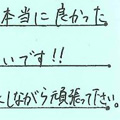 本当に良かった
いです!!
しながら頑張って下さい。